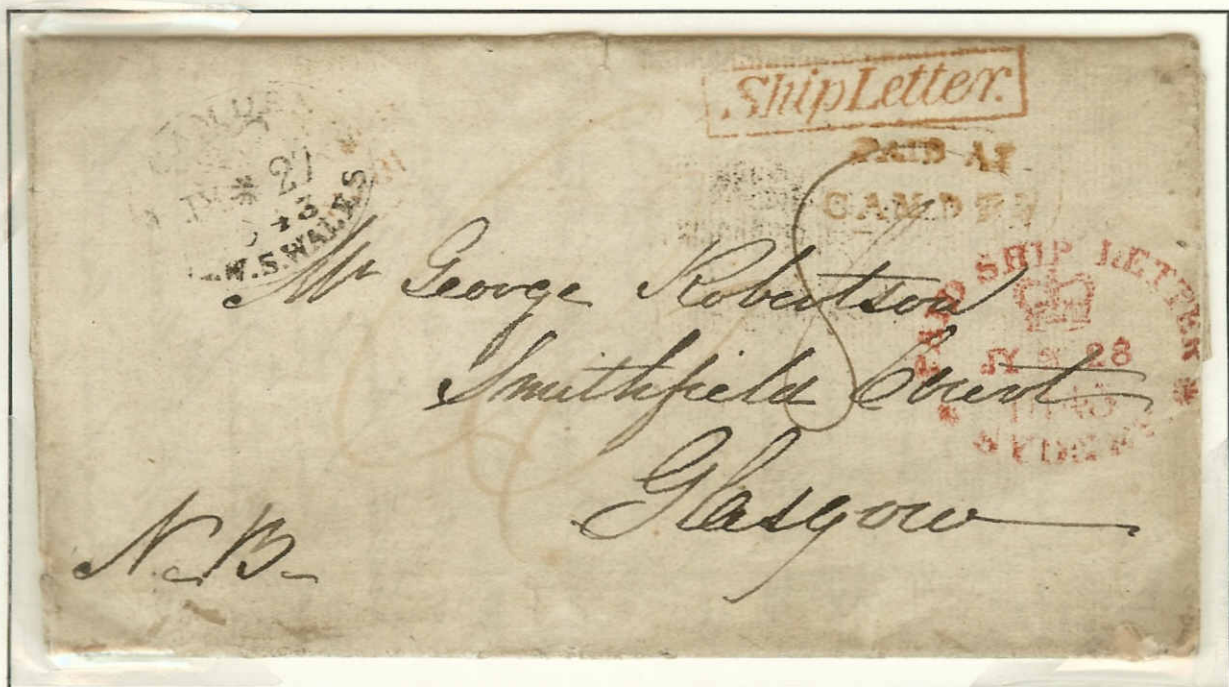 Ship Letter.
PAID AT
CAMDEN
JY * 27
N.S.WALES
PAID SHIP LETTER
JY * 28
1843
SYDNEY
Mr George Robertson
Smithfield Court
Glasgow
N.B.